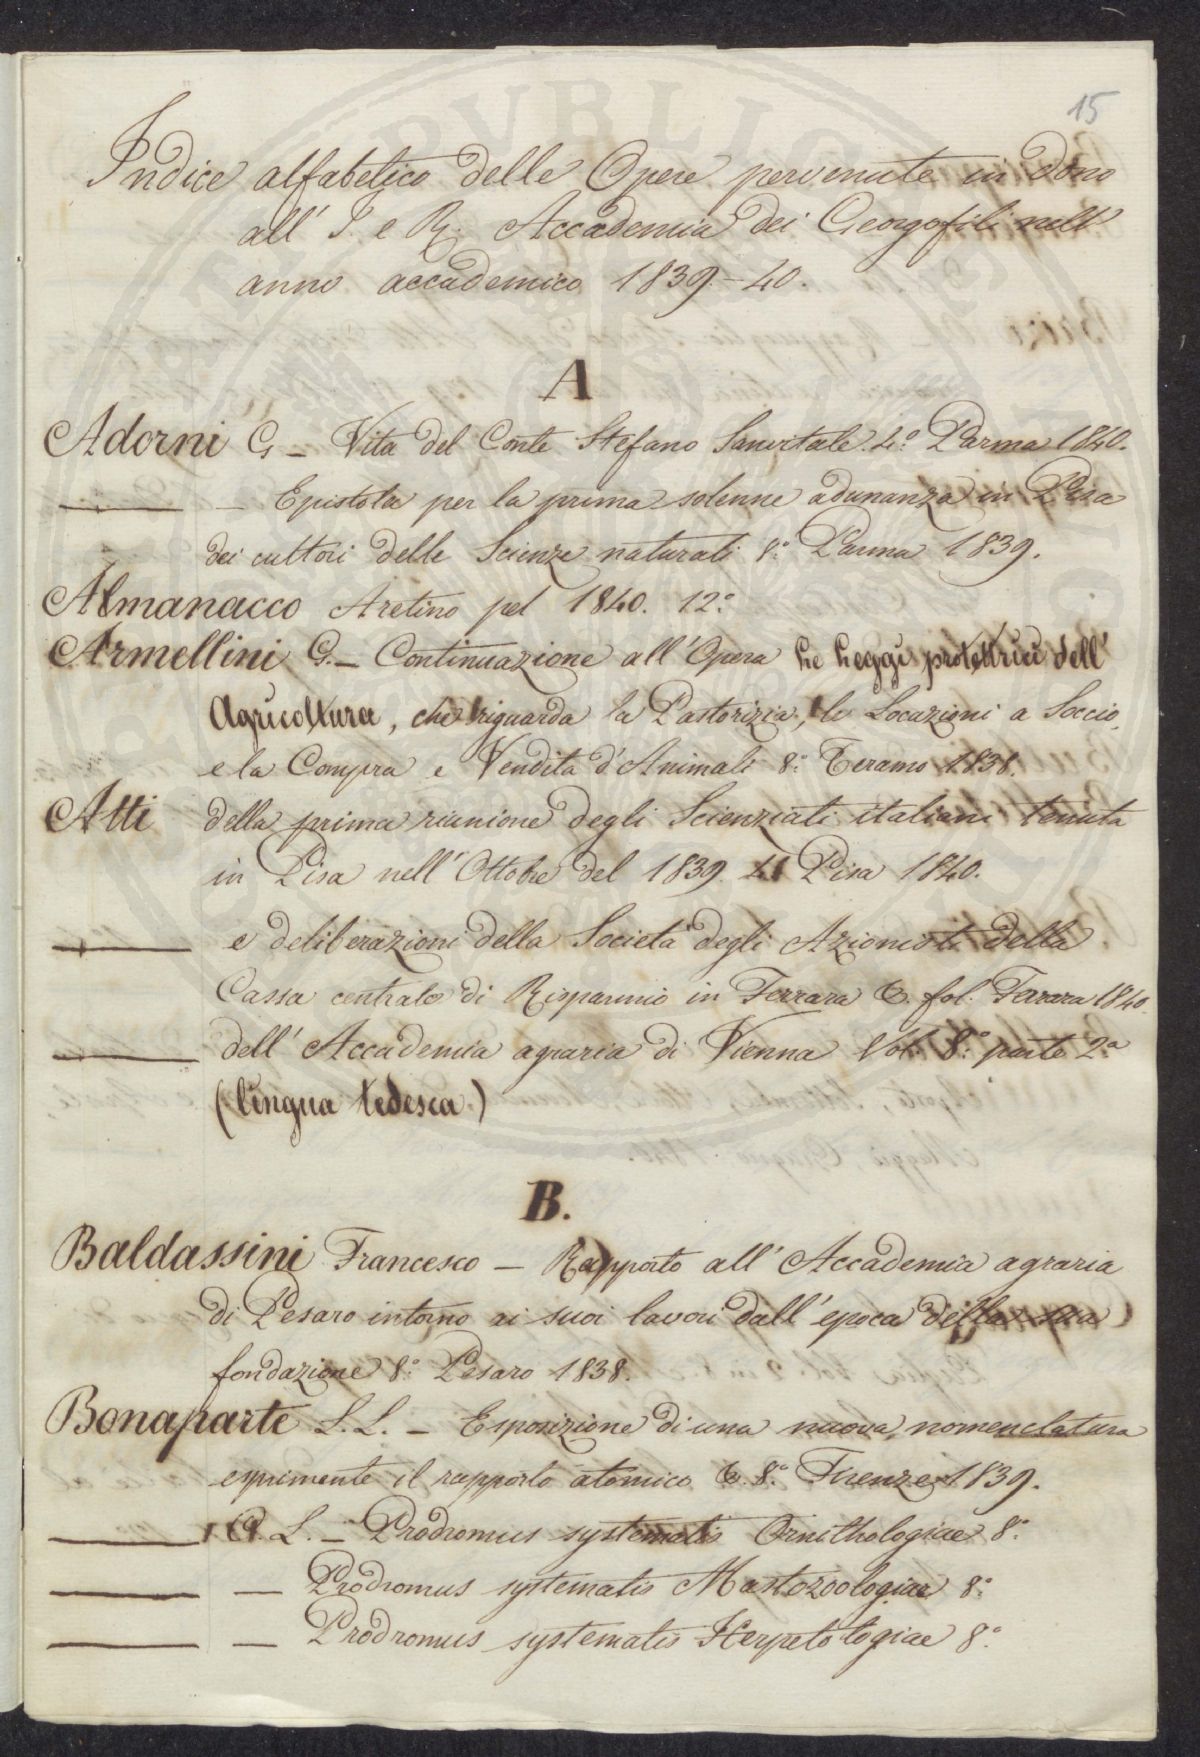 15
Indice alfabetico delle Opere pervenute in dono
all' I. e R. Accademia dei Georgofili nell'
anno accademico 1839.-40.
A
Adorni G - Vita del Conte Stefano Sanvitale. 4.° Parma 1840.
— - Epistola per la prima solenne adunanza in Pisa
dei cultori delle Scienze naturali 8.° Parma 1839.
Almanacco Aretino pel 1840. 12.°
Armellini G. - Continuazione all'Opera Le Leggi protettrici dell'
Agricoltura, che riguarda la Pastorizia, le Locazioni a Soccio,
e la Compra e Vendita d'Animali 8.° Teramo 1838.
Atti della prima riunione degli Scienziati italiani tenuta
in Pisa nell'Ottobre del 1839. 4.° Pisa 1840.
— e deliberazioni della Società degli Azionisti della
Cassa centrale di Risparmio in Ferrara &. fol. Ferrara 1840.
— dell'Accademia agraria di Vienna Vol. 8.° parte 2.a
(lingua tedesca)
B.
Baldassini Francesco - Rapporto all'Accademia agraria
di Pesaro intorno ai suoi lavori dall'epoca della sua
fondazione 8.° Pesaro 1838.
Bonaparte L. L. - Esposizione di una nuova nomenclatura
esprimente il rapporto atomico &. 8.° Firenze 1839.
— C. L. - Prodromus systematis Ornithologiae 8.°
— — Prodromus systematis Mastozoologiae 8.°
— — Prodromus systematis Herpetologiae 8.°